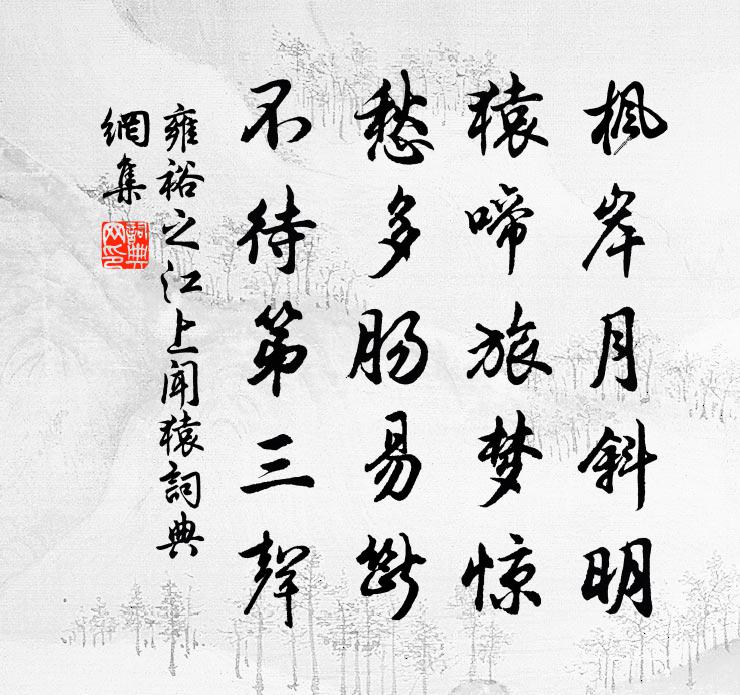 枫岸月斜明
猿啼旅梦惊
愁多肠易断
不待第三聲
雍裕之江上闻猿詞典
網集
詞典
网印